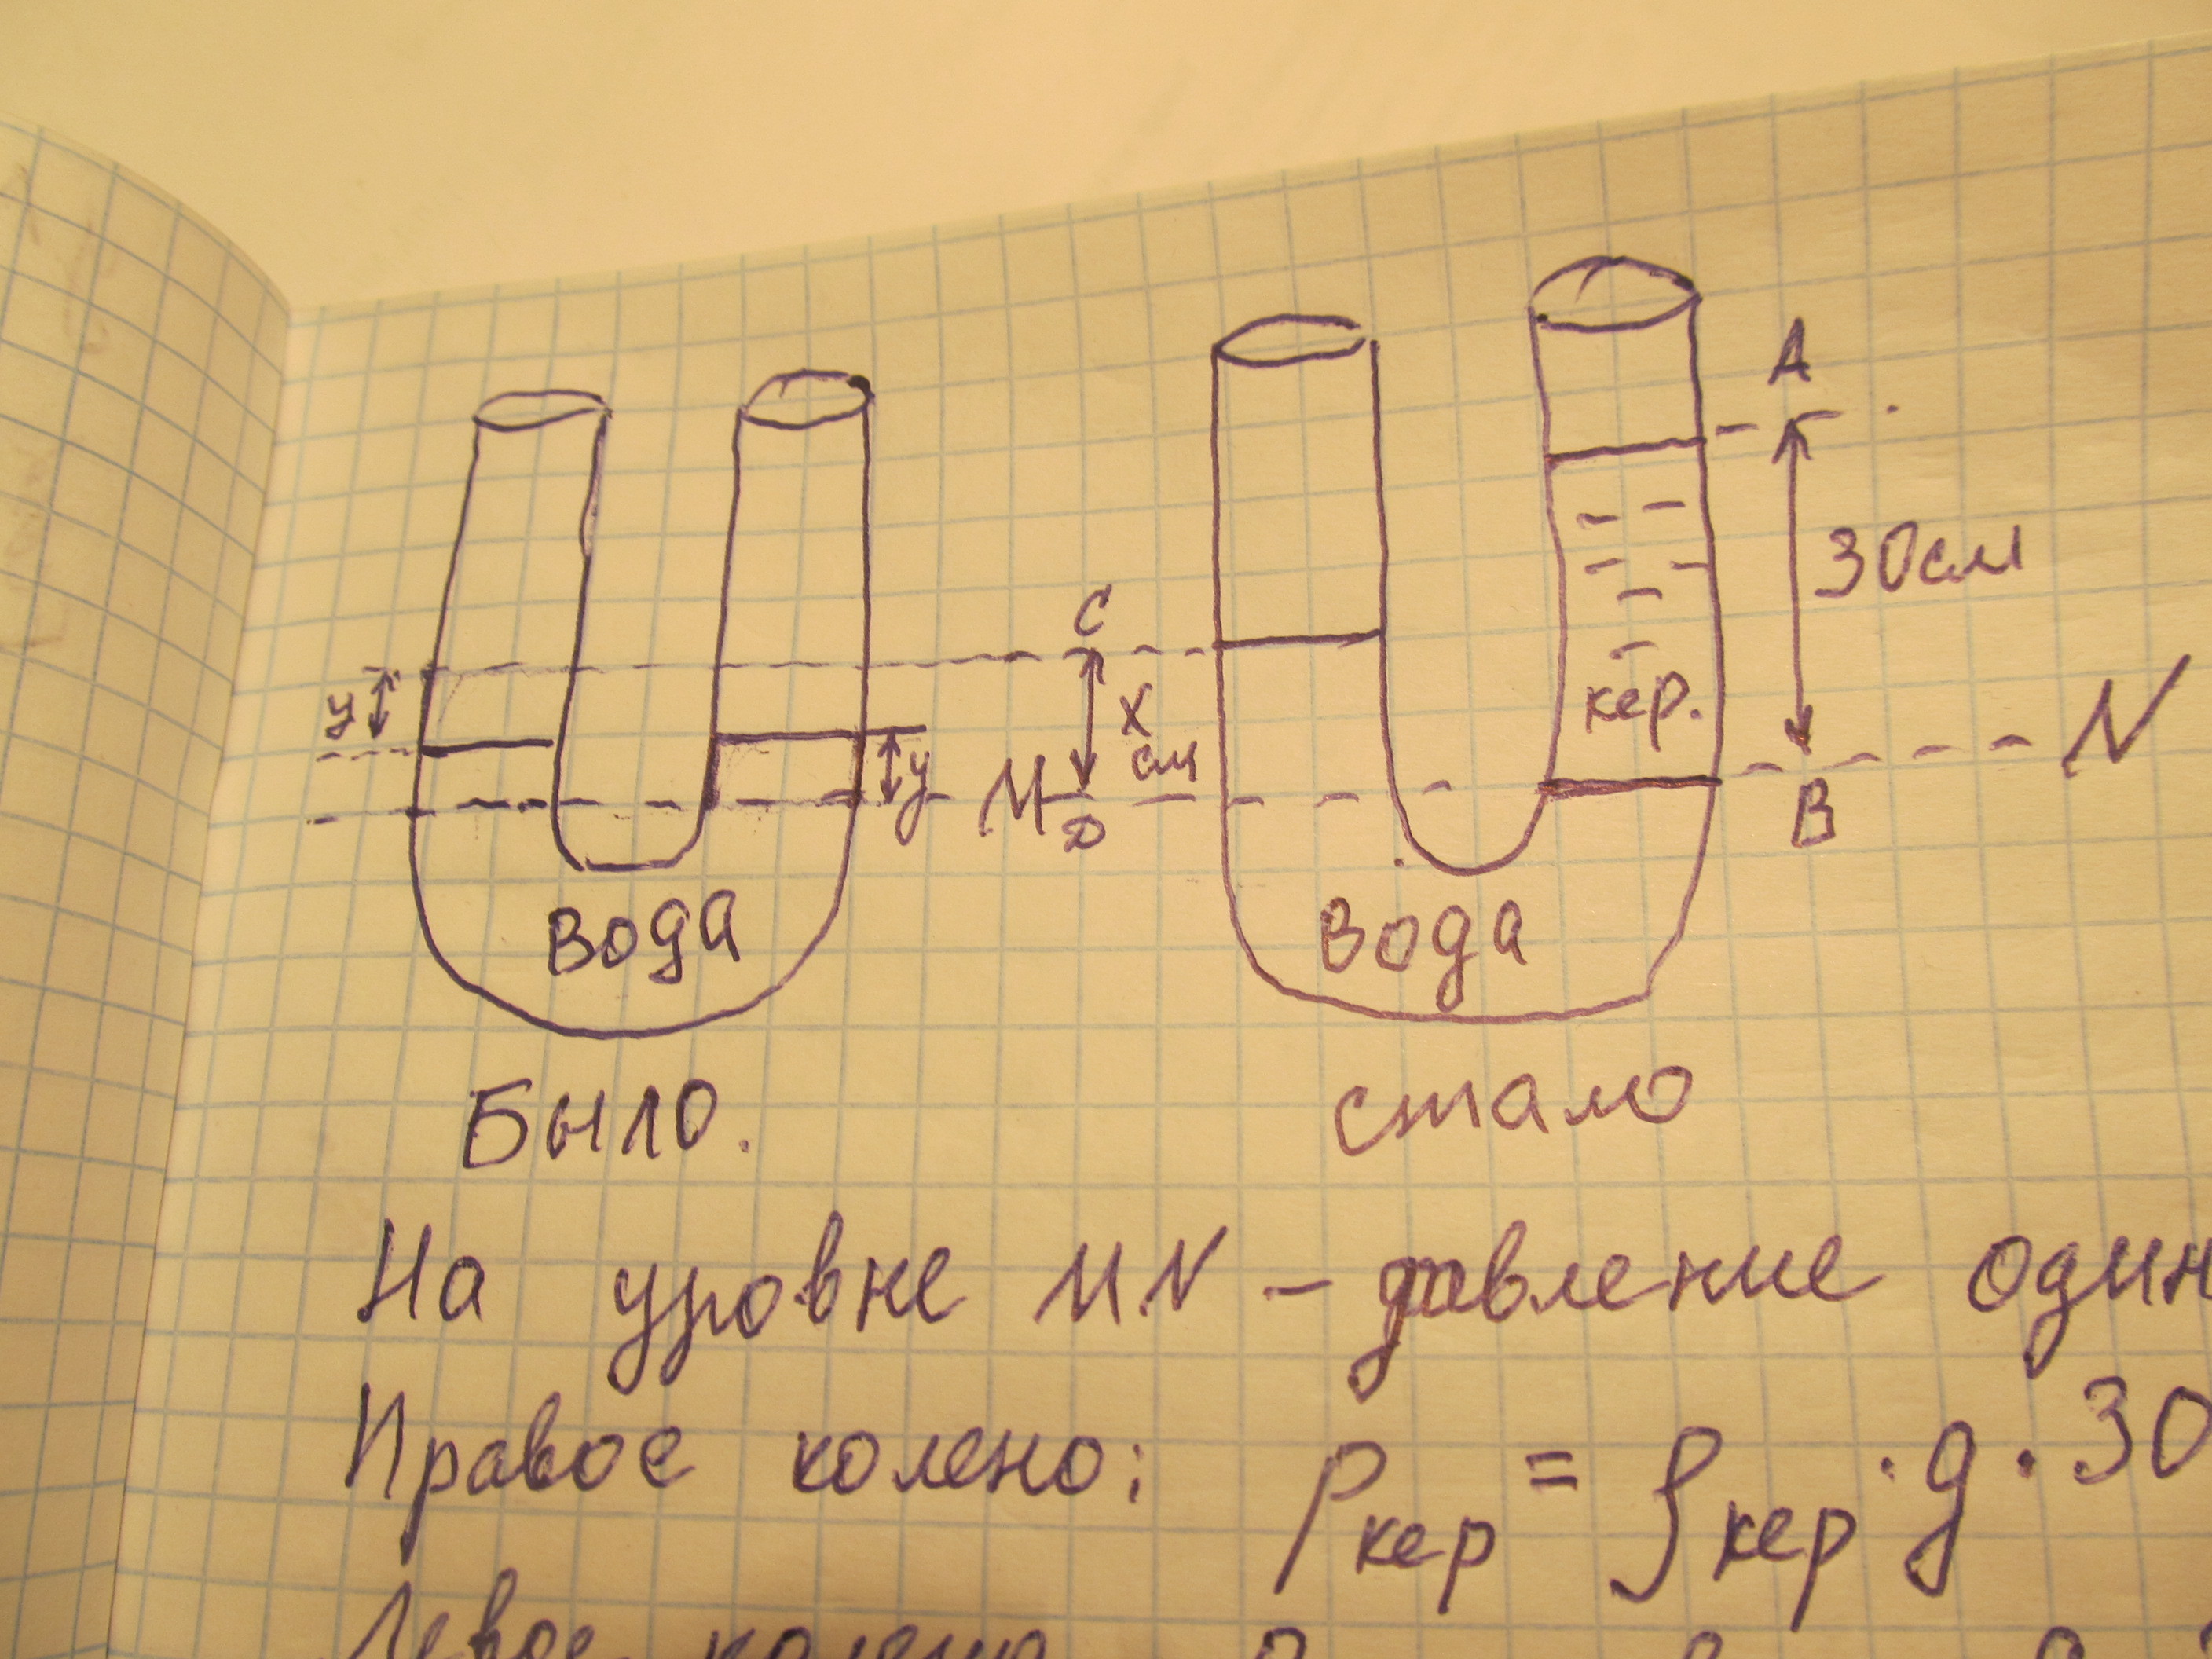 A
30см
C
y
x
см
кер.
N
y
M
D
B
вода
вода
Было.
стало
На уровне MN – давление один
Правое колено: Pкер = ρкер · g · 30
Левое колено